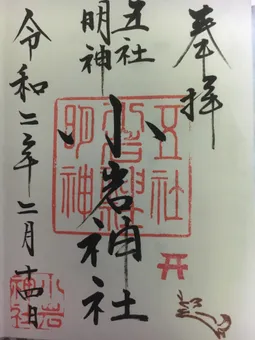 奉拝
五社
明神
小岩神社
令和二年二月十四日
五社
小岩神社
明神
小岩
神社